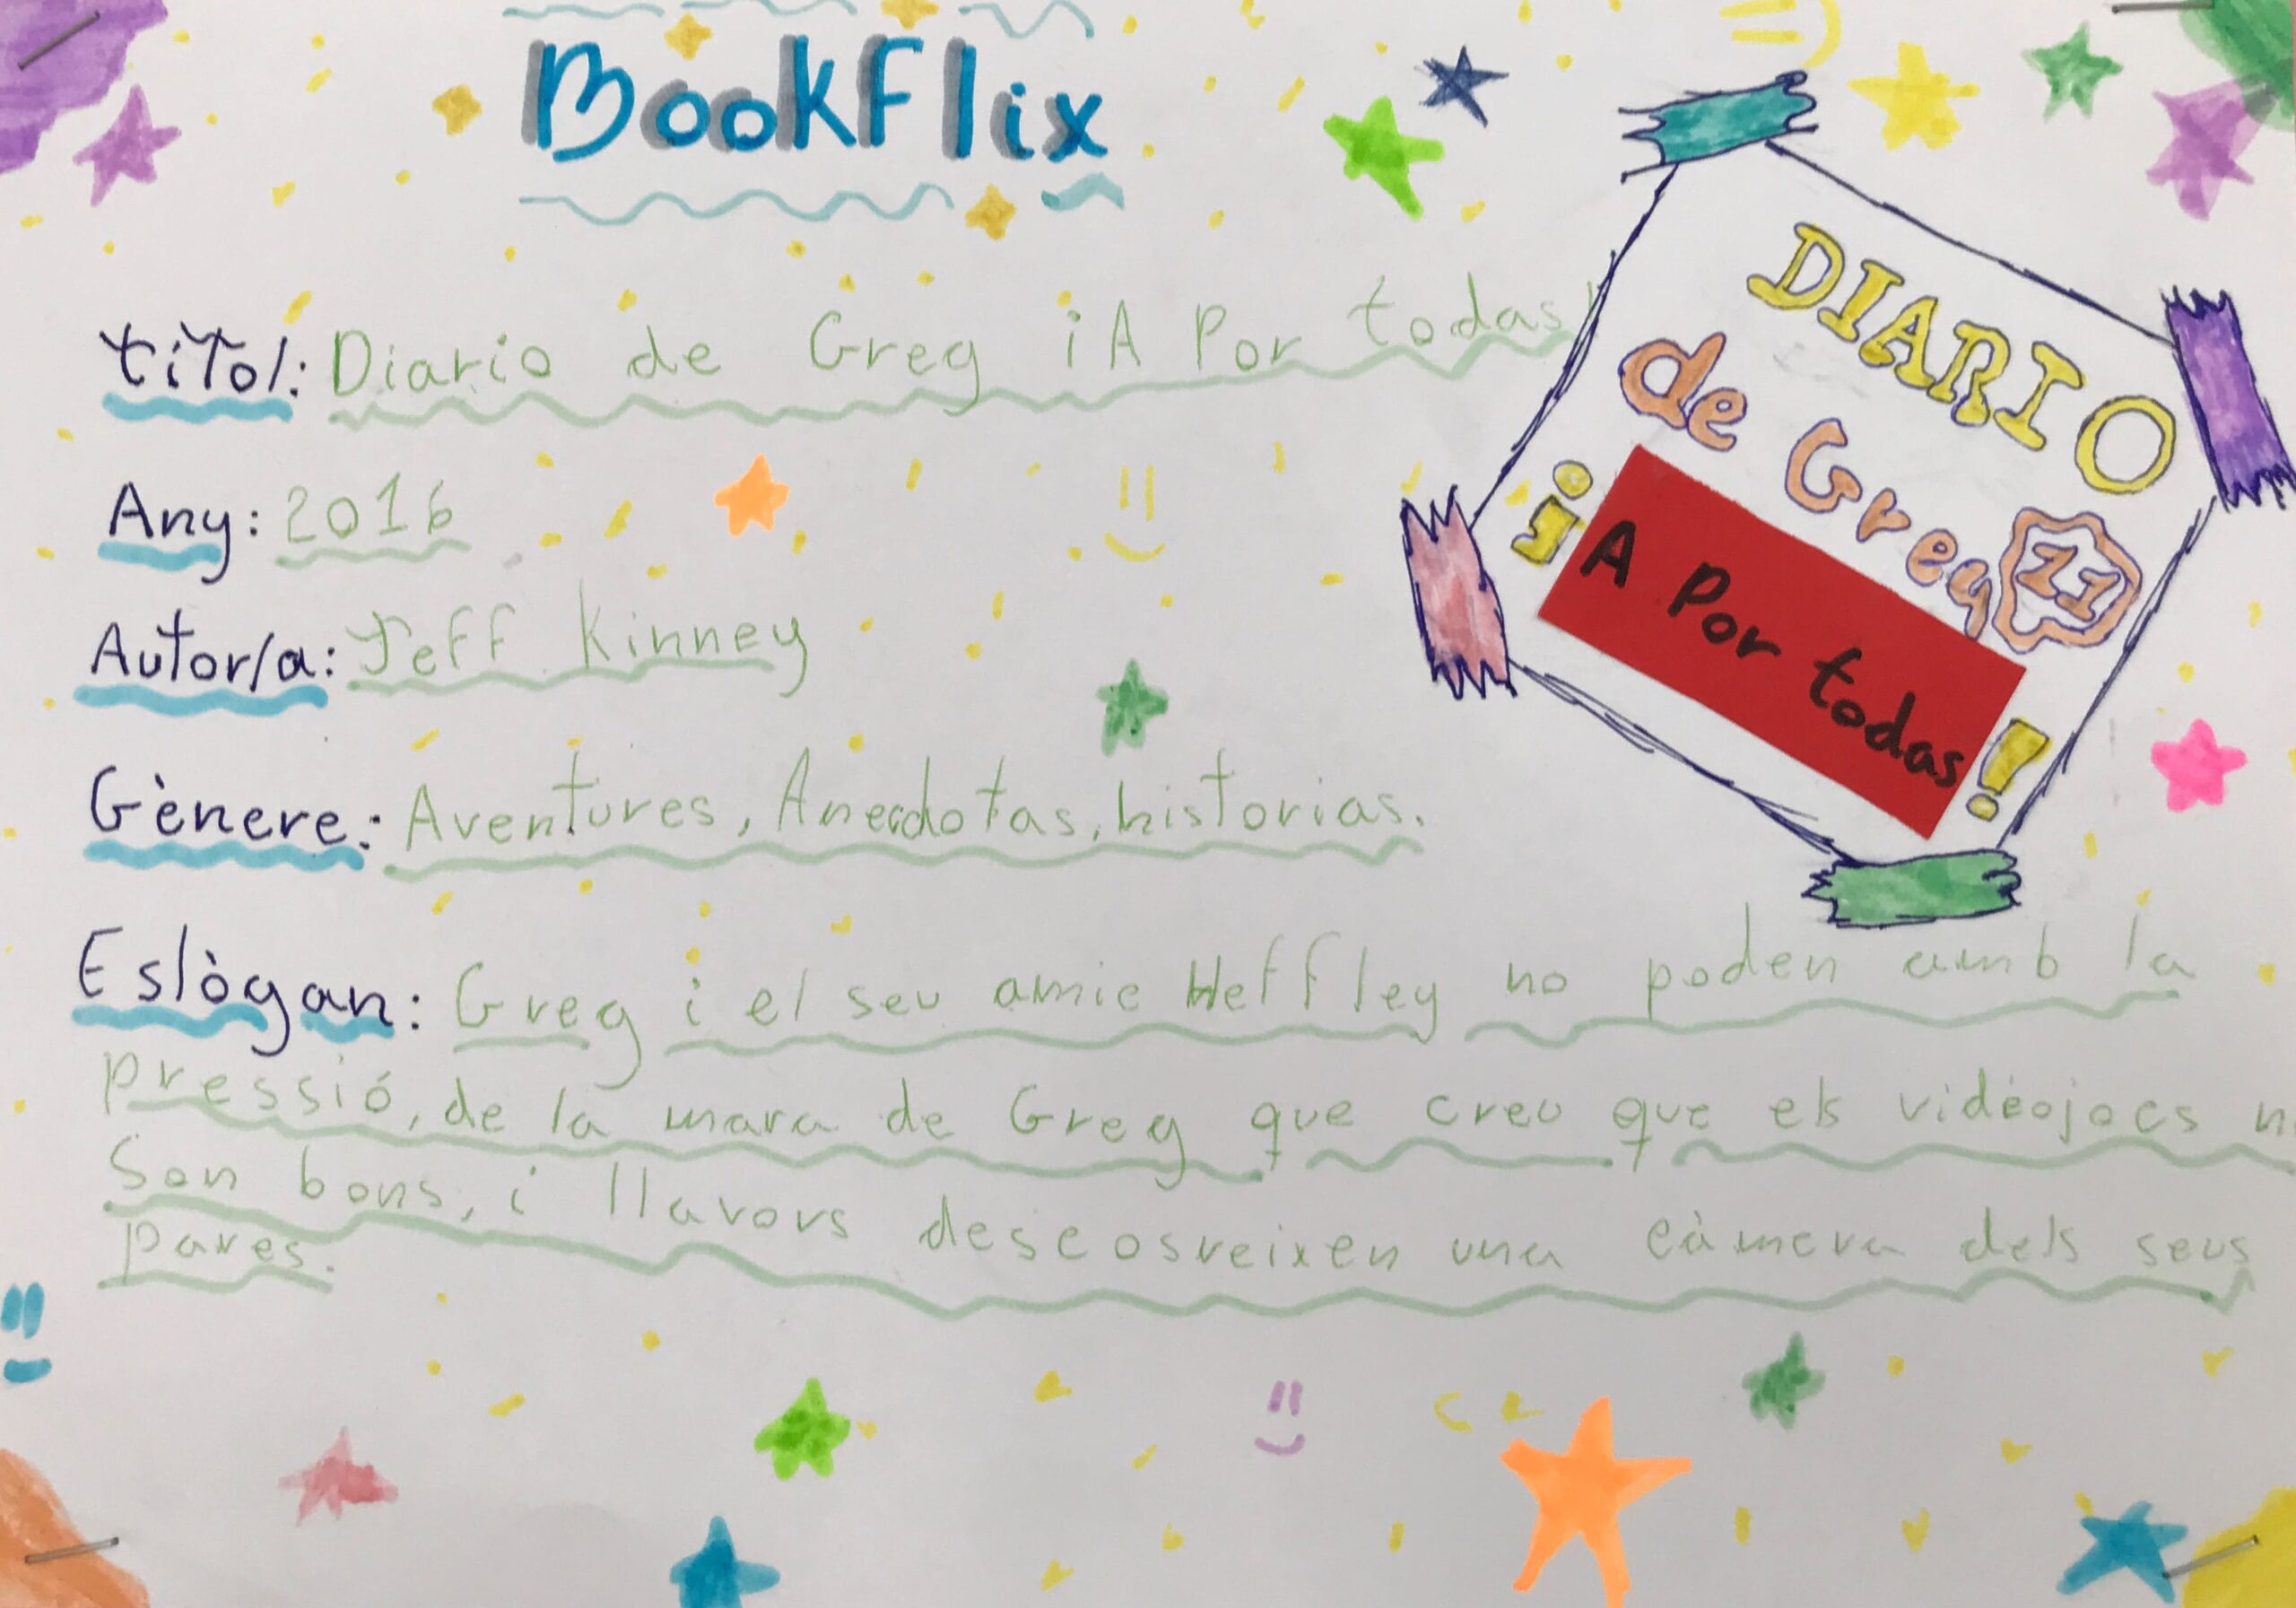 BookFlix
títol: Diario de Greg ¡A Por todas!
DIARIO
de Greg 11
¡A Por todas!
Any: 2016
Autor/a: Jeff Kinney
Gènere: Aventures, Anecdotas, historias.
Eslògan: Greg i el seu amic Heffley no poden amb la
pressió, de la mara de Greg que creu que els vidèojocs
Son bons, i llavors descosreixen una càmera dels seus
pares.